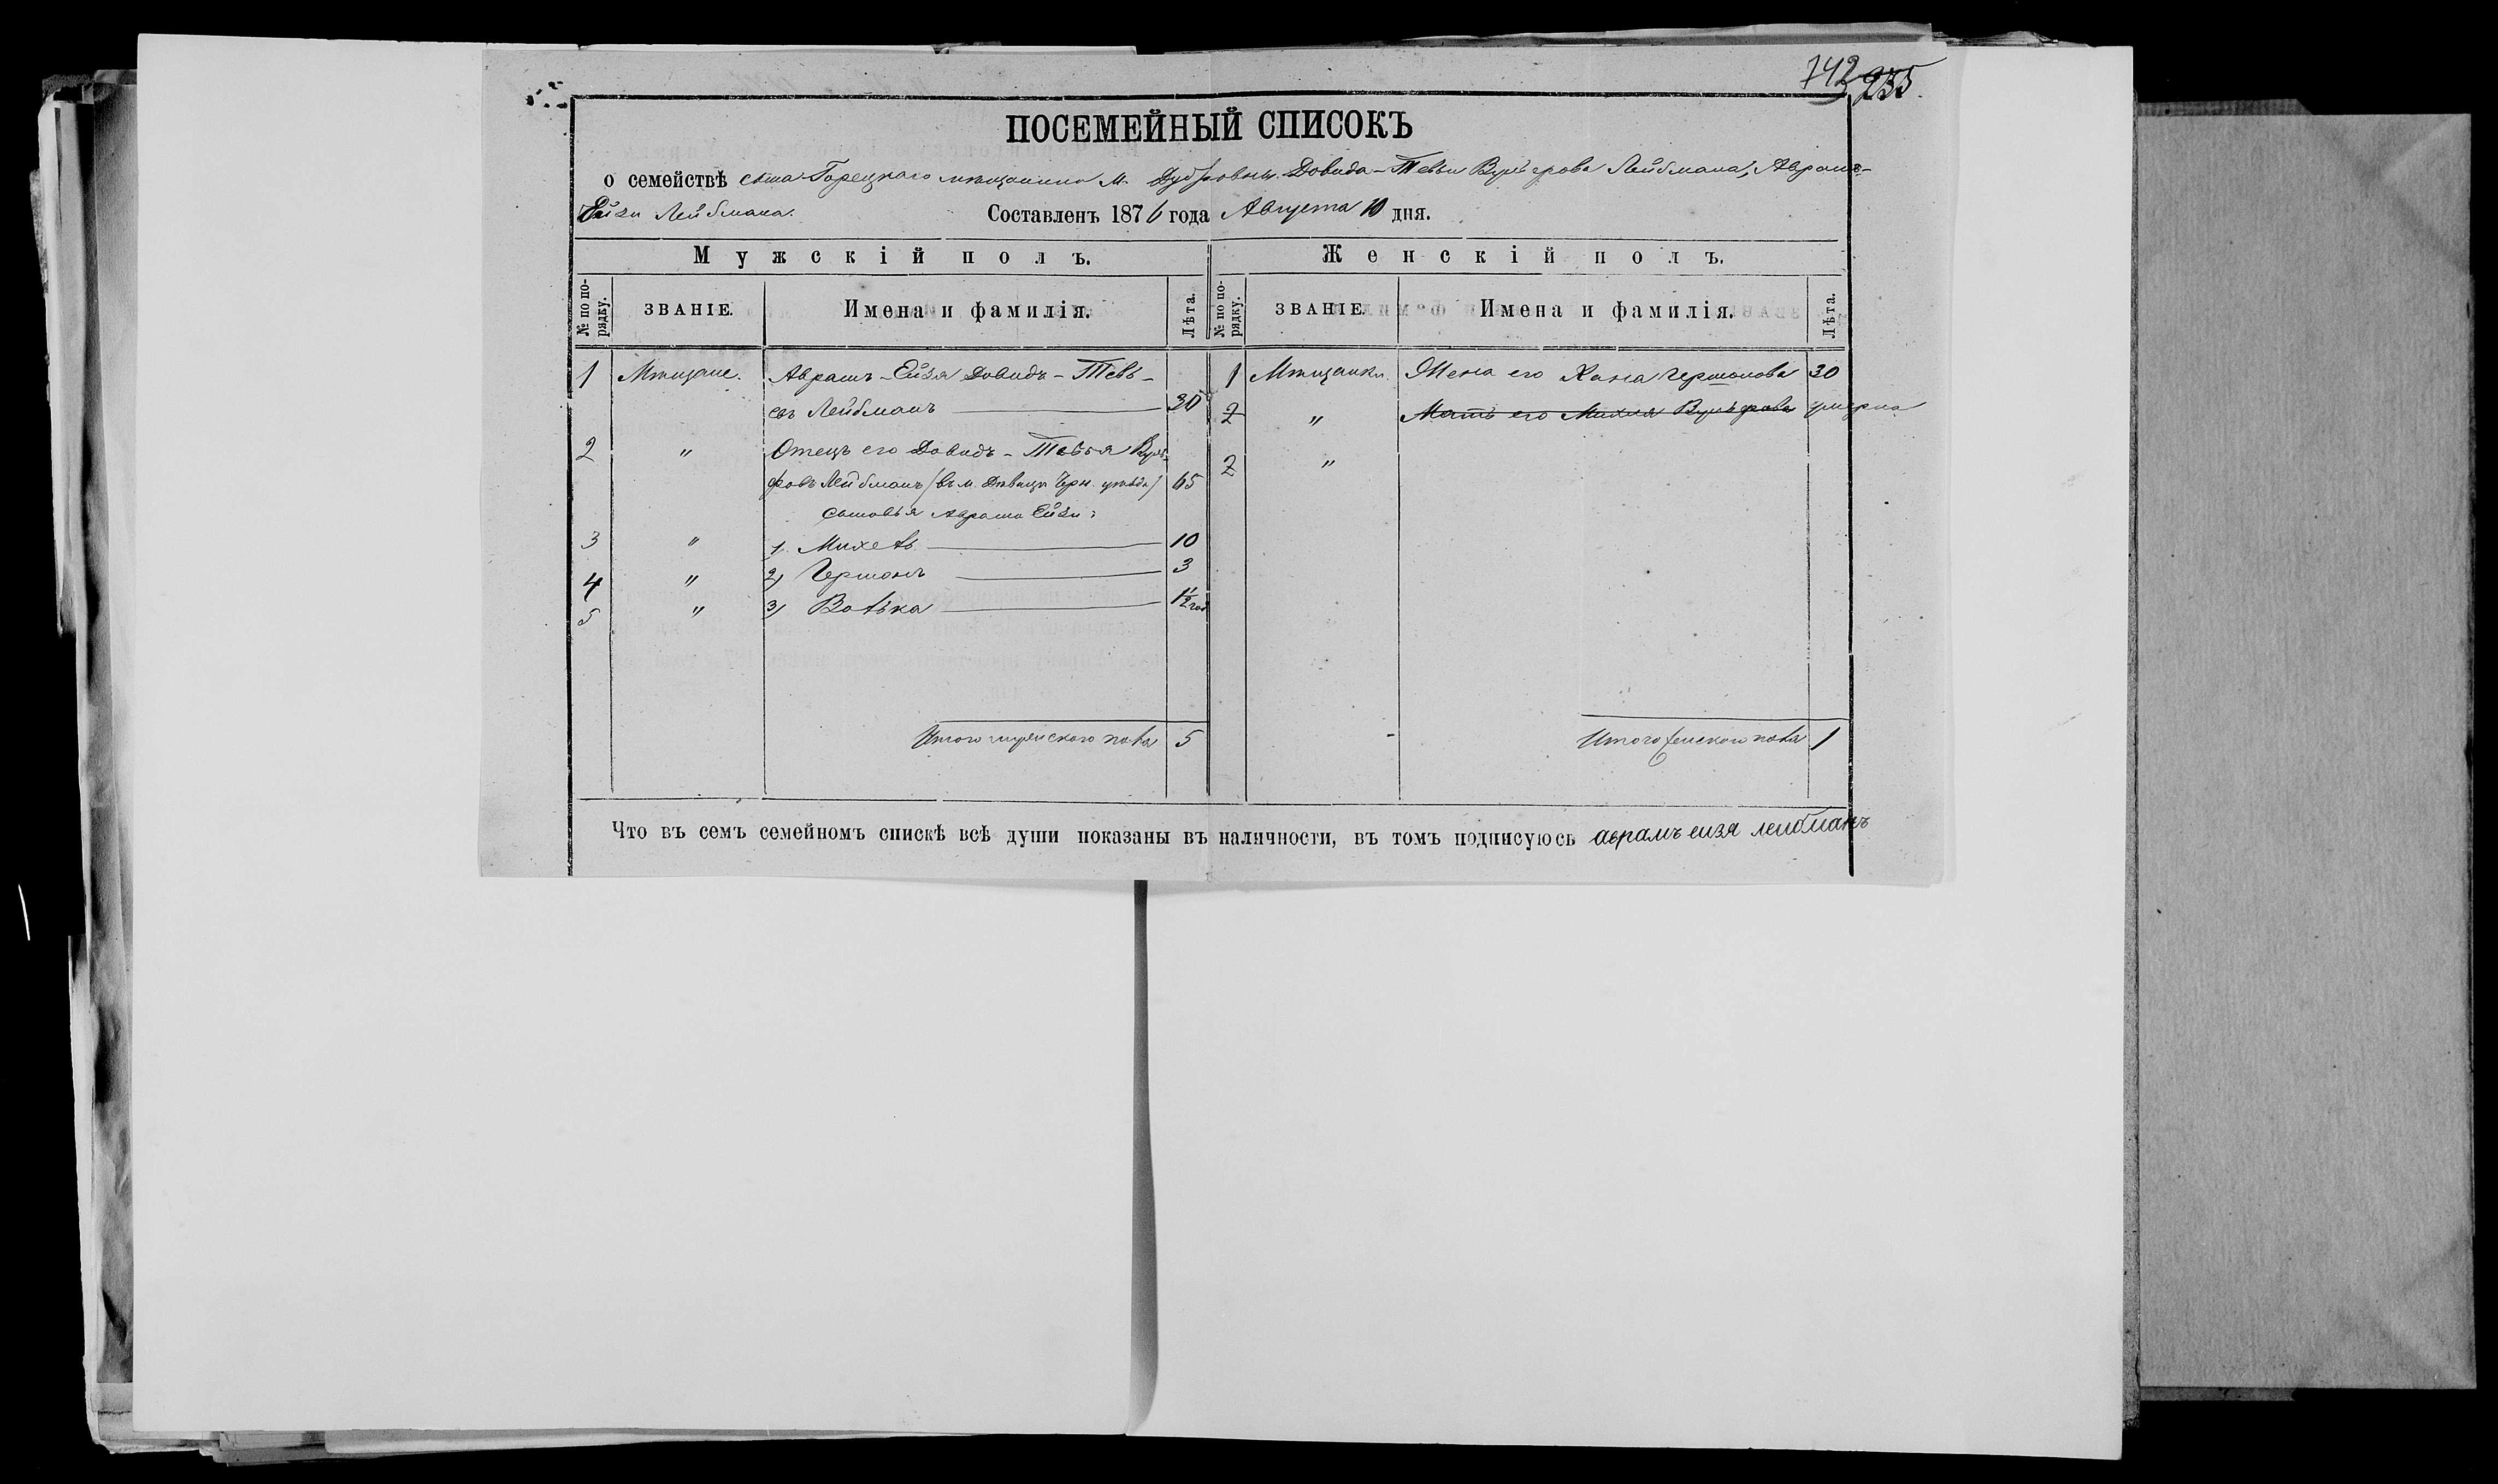 742 235
ПОСЕМЕЙНЫЙ СПИСОКЪ
о семействѣ сына Горецкаго мѣщанина м. Дубровны Довида-Тевьи Вульфова Лейбмана, Авраамъ-
Ейзи Лейбмана. Составленъ 1876 года Августа 10 дня.
Мужскій полъ. Женскій полъ.
№ по порядку. ЗВАНІЕ. Имена и фамилія. Лѣта. № по порядку. ЗВАНІЕ. Имена и фамилія. Лѣта.
1 Мѣщане. Аврамъ-Ейзя Довидъ-Тевь- 1 Мѣщанки. Жена его Хана Гершонова 30
евъ Лейбманъ 30 2 " Мать его Михля Вульфова умерла
2 " Отецъ его Довидъ-Тевья Вуль-
фовъ Лейбманъ (въ м. Дѣвица Черн. уѣзда) 65 2 "
сыновья Аврама Ейзи:
3 " 1. Михель 10
4 " 2) Гершонъ 3
5 " 3) Волька 1½ год
Итого мужского пола 5 Итого женского пола 1
Что въ семъ семейномъ спискѣ всѣ души показаны въ наличности, въ томъ подписуюсь аврамъ еизя леибманъ